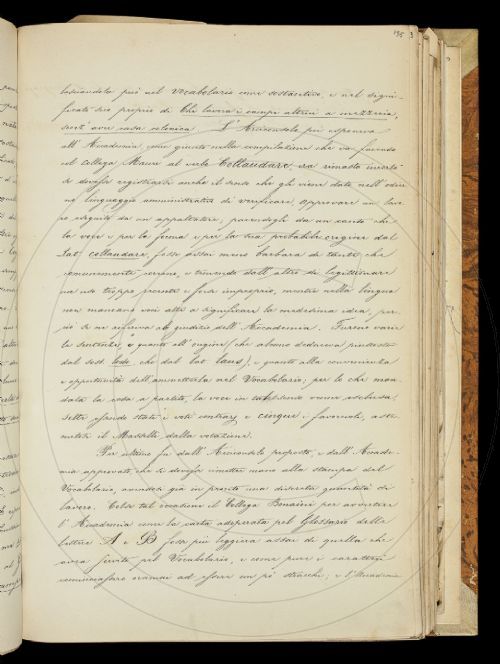 195 3
lasciandola però nel Vocabolario come sostantivo, e nel signi-
ficato suo proprio di Chi lavora i campi altrui a mezzeria,
senz' aver casa colonica. L'Arciconsolo poi esponeva
all'Accademia, come giunto nella compilazione che va facendo
col Collega Mauri al verbo Collaudare, era rimasto incerto
se dovesse registrarsi anche il senso che gli viene dato nell'odier-
no linguaggio amministrativo di verificare, approvare un lavo-
ro eseguito da un appaltatore; parendogli da un canto che
la voce e per la forma e per la sua probabile origine dal
Lat. collaudare, fosse assai meno barbara di tante che
comunemente corrono, e temendo dall'altro di legittimare
un uso troppo recente e forse improprio, mentre nella lingua
non mancano voci atte a significare la medesima idea, per-
ciò se ne riferiva al giudizio dell'Accademia. Furono varie
le sentenze, e quanto all'origine (che alcuno deduceva piuttosto
dal sost. lode, che dal lat. laus), e quanto alla convenienza
e opportunità dell'ammetterla nel Vocabolario; per lo che man-
data la cosa a partito, la voce in tal senso venne esclusa,
sette essendo stati i voti contrarj e cinque i favorevoli, aste-
nutosi il Massotti dalla votazione.
Per ultimo fu dall'Arciconsolo proposto, e dall'Accade-
mia approvato, che si dovesse metter mano alla stampa del
Vocabolario, avendosi già in pronto una discreta quantità di
lavoro. Colse tal occasione il Collega Bonaini per avvertire
l'Accademia come la carta adoperata pel Glossario della
lettera A e B fosse più leggiera assai di quella che
aveva servito pel Vocabolario, e come pure i caratteri
cominciassero oramai ad essere un po' stracchi; e l'Accademia